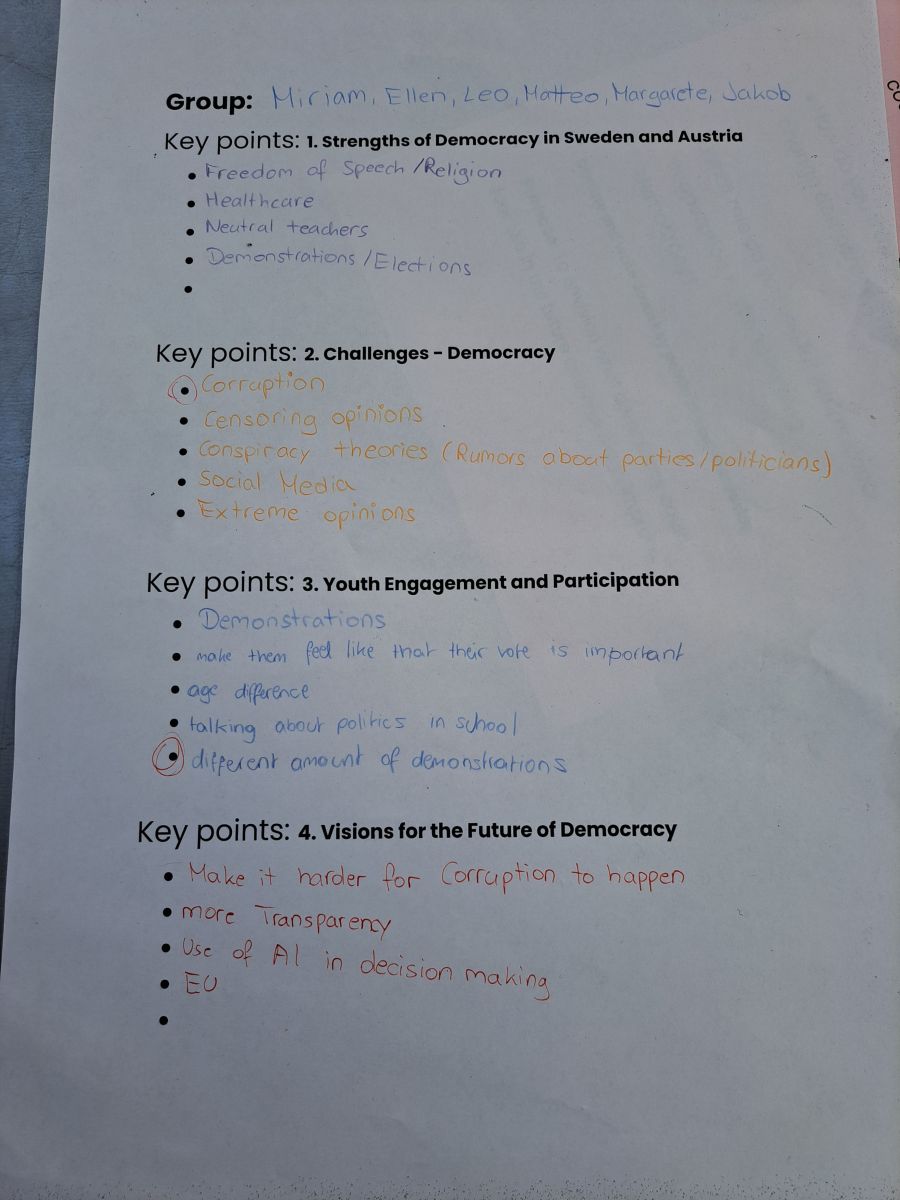 Group: Miriam, Ellen, Leo, Matteo, Margarete, Jakob
Key points: 1. Strengths of Democracy in Sweden and Austria
• Freedom of Speech / Religion
• Healthcare
• Neutral teachers
• Demonstrations / Elections
•
Key points: 2. Challenges - Democracy
• Corruption
• Censoring opinions
• Conspiracy theories (Rumors about parties/politicians)
• Social Media
• Extreme opinions
Key points: 3. Youth Engagement and Participation
• Demonstrations
• make them feel like that their vote is important
• age difference
• talking about politics in school
• different amount of demonstrations
Key points: 4. Visions for the Future of Democracy
• Make it harder for Corruption to happen
• more Transparency
• Use of AI in decision making
• EU
•